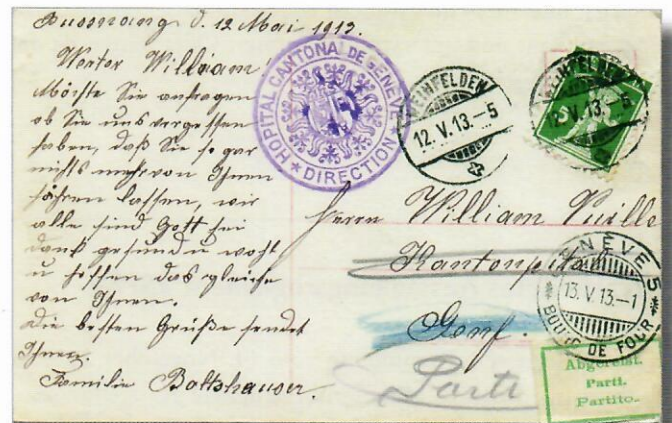 Bussnang d. 12 Mai 1913.
Werter William
Möchte Sie anfragen
ob Sie uns vergessen
haben, daß Sie so gar
nichts mehr von Ihnen
hören lassen, wir
alle sind Gott sei
dank gesund u wohl
u hoffen das gleiche
von Ihnen.
Die besten Grüße sendet
Ihnen.
Familie Boltshauser.
HOPITAL CANTONAL DE GENEVE
* DIRECTION *
WEINFELDEN
12.V.13.–5
WEINFELDEN
12.V.13.–5
Herrn William Vuille
Kantonspital
Genf.
Parti
GENÈVE 5
13.V.13.–1
BOURG DE FOUR
Abgereist.
Parti.
Partito.